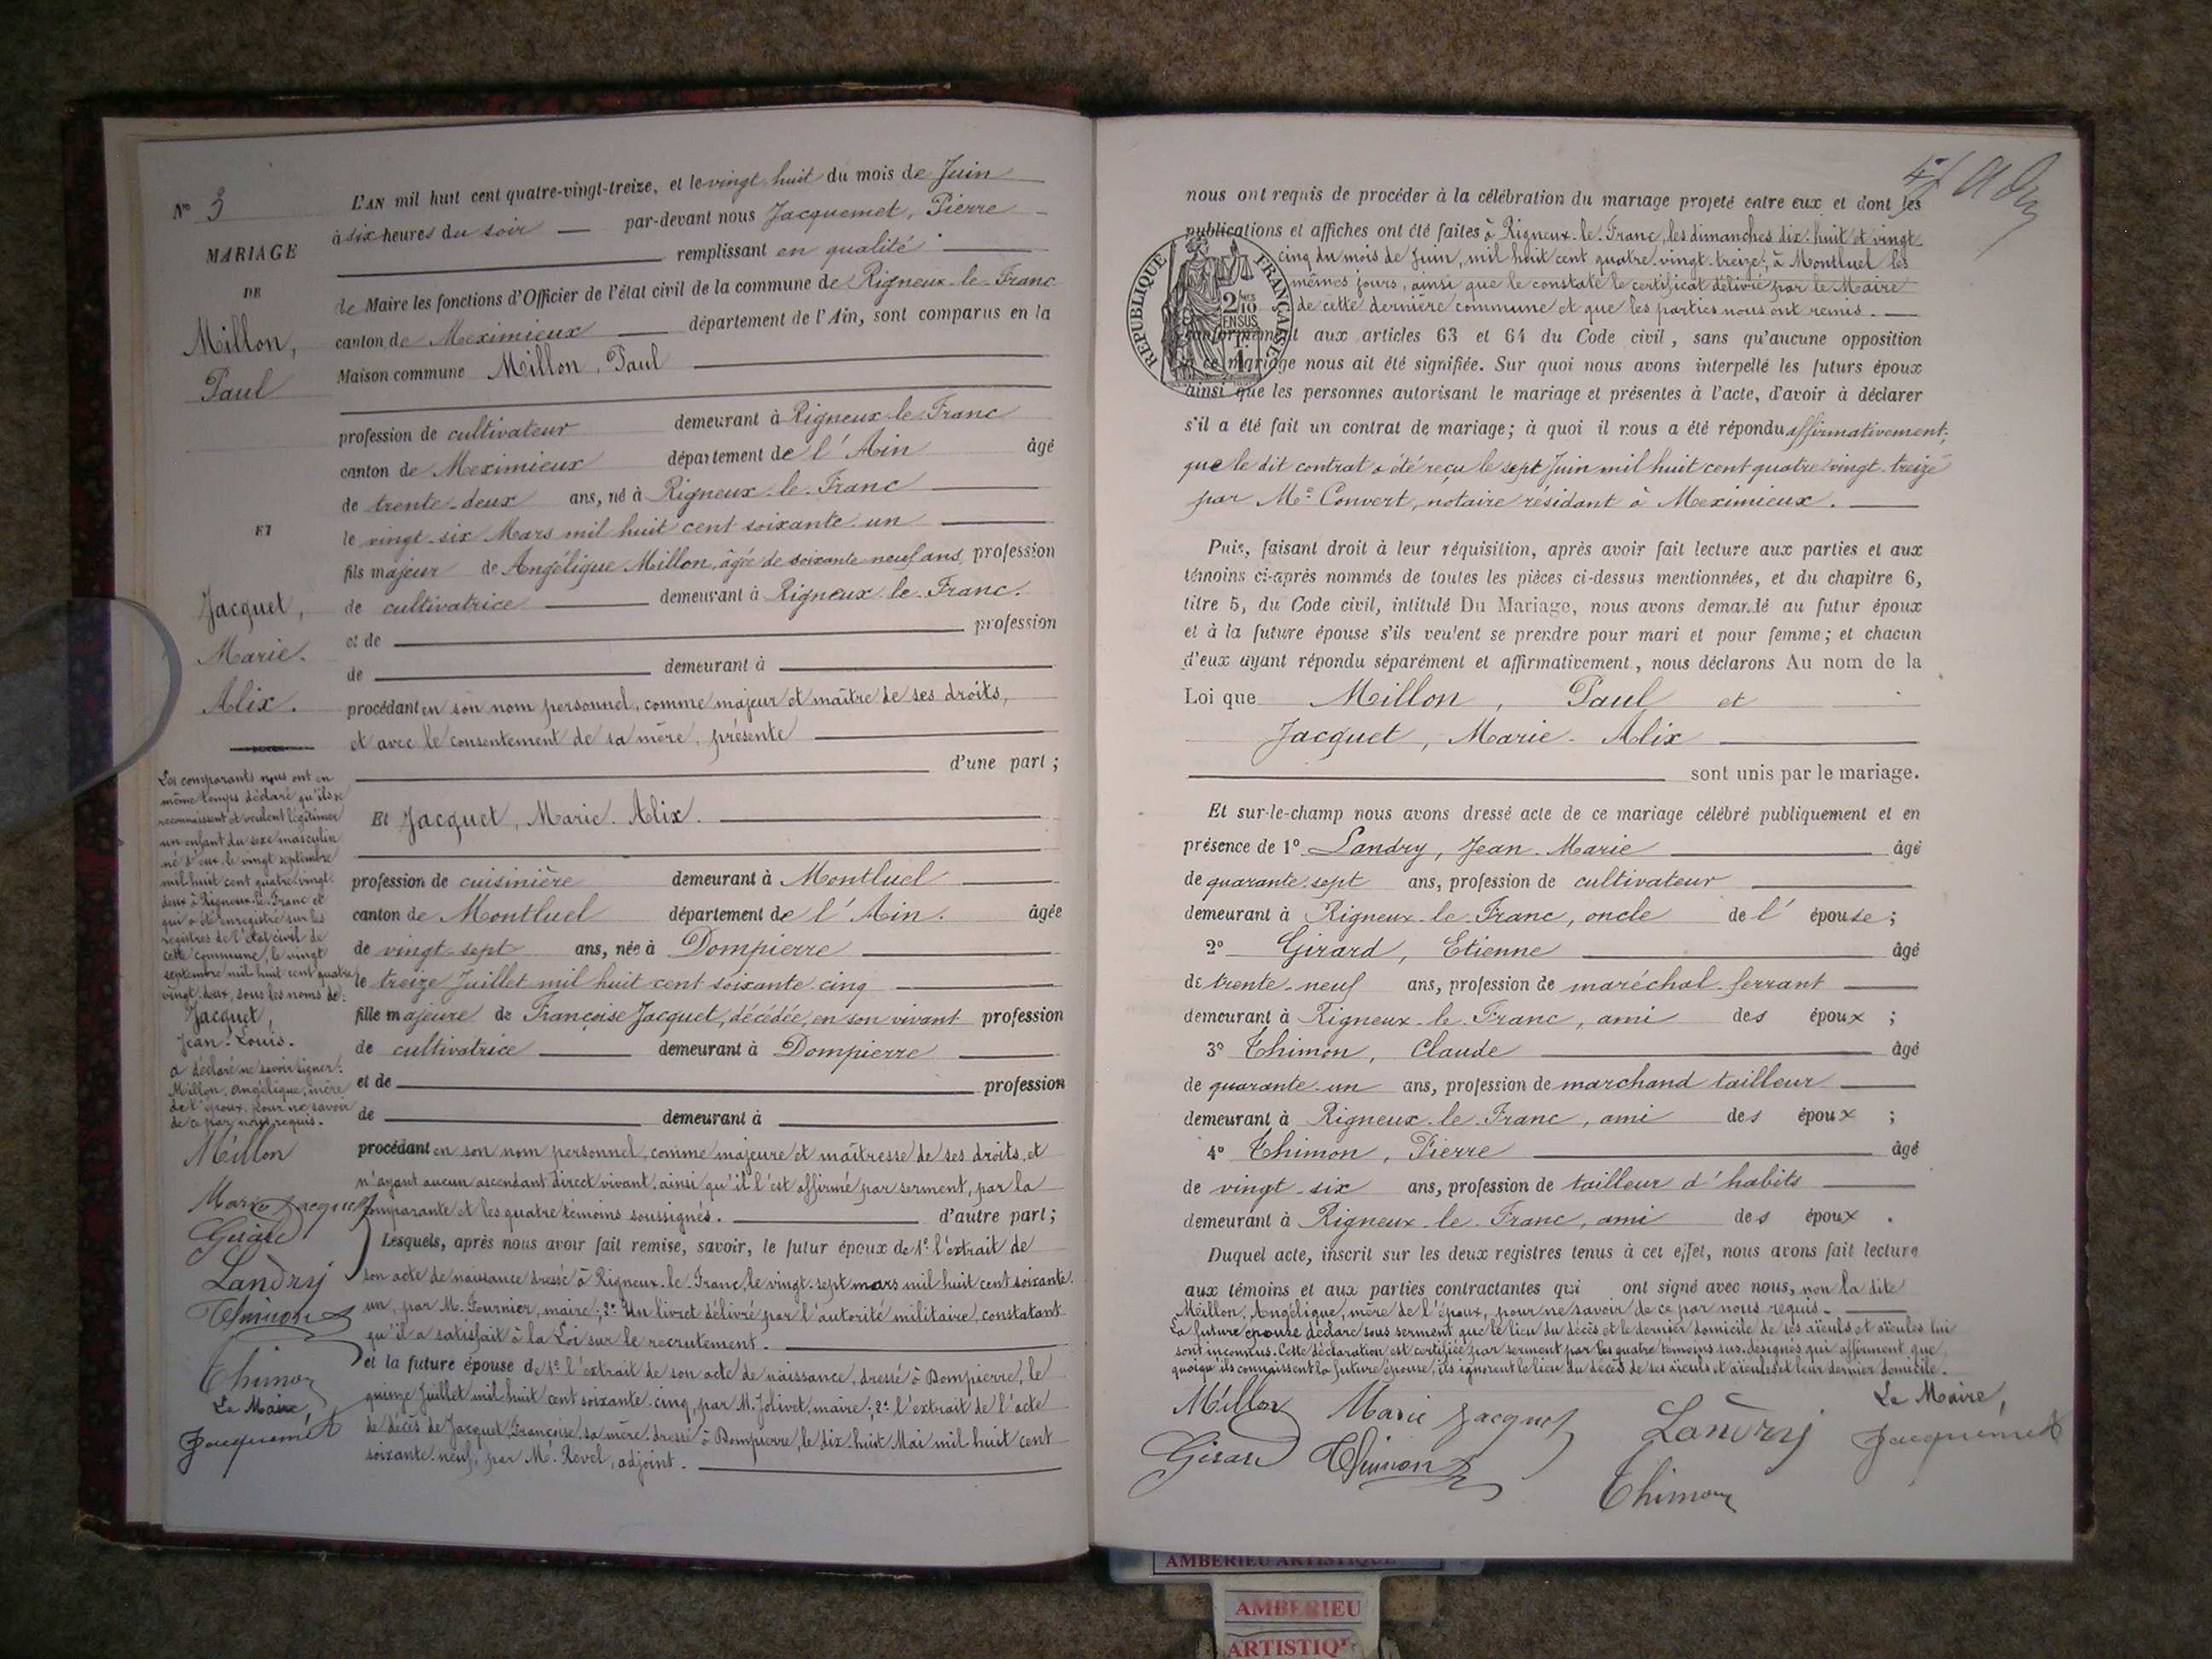 Nº 3
MARIAGE
DE
Millon,
Paul
ET
Jacquet,
Marie.
Alix.
Les comparants nous ont en
même temps déclaré qu'ils se
reconnaissent et veulent légitimer
un enfant du sexe masculin
né d'eux, le vingt septembre
mil huit cent quatre vingt
deux à Rigneux-le-Franc et
qui a été enregistré sur les
registres de l'état civil de
cette commune, le vingt
septembre mil huit cent quatre
vingt-deux, sous les noms de:
Jacquet,
Jean-Louis.
a déclaré ne savoir signer:
Millon, Angélique, mère
de l'époux, pour ne savoir
de ce par nous requis.
Millon
Marie Jacquet
Girard
Landry
Thimon
Thimon
Le Maire,
Jacquemet
L'AN mil huit cent quatre-vingt-treize, et le vingt-huit du mois de Juin
à six heures du soir — par-devant nous Jacquemet, Pierre
remplissant en qualité
de Maire les fonctions d'Officier de l'état civil de la commune de Rigneux-le-Franc
canton de Meximieux — département de l'Ain, sont comparus en la
Maison commune Millon, Paul
profession de cultivateur demeurant à Rigneux-le-Franc
canton de Meximieux département de l'Ain âgé
de trente-deux ans, né à Rigneux-le-Franc
le vingt-six Mars mil huit cent soixante-un
fils majeur de Angélique Millon, âgée de soixante-neuf ans, profession
de cultivatrice — demeurant à Rigneux-le-Franc.
et de — profession
de — demeurant à —
procédant en son nom personnel, comme majeur et maître de ses droits,
et avec le consentement de sa mère, présente
d'une part;
Et Jacquet, Marie-Alix.
profession de cuisinière demeurant à Montluel
canton de Montluel département de l'Ain. âgée
de vingt-sept ans, née à Dompierre
le treize Juillet mil huit cent soixante-cinq
fille majeure de Françoise Jacquet, décédée, en son vivant profession
de cultivatrice — demeurant à Dompierre
et de — profession
de — demeurant à —
procédant en son nom personnel, comme majeure et maîtresse de ses droits, et
n'ayant aucun ascendant direct vivant, ainsi qu'il l'est affirmé par serment, par la
comparante et les quatre témoins soussignés. — d'autre part;
Lesquels, après nous avoir fait remise, savoir, le futur époux de 1º l'extrait de
son acte de naissance dressé à Rigneux-le-Franc, le vingt-sept mars mil huit cent soixante-
un, par M. Fournier, maire; 2º Un livret délivré par l'autorité militaire, constatant
qu'il a satisfait à la Loi sur le recrutement.
et la future épouse de 1º l'extrait de son acte de naissance, dressé à Dompierre, le
quinze Juillet mil huit cent soixante-cinq, par M. Jolivet, maire; 2º l'extrait de l'acte
de décès de Jacquet, Françoise, sa mère, dressé à Dompierre, le dix-huit Mai mil huit cent
soixante-neuf, par M. Revel, adjoint.
nous ont requis de procéder à la célébration du mariage projeté entre eux et dont les
publications et affiches ont été faites à Rigneux-le-Franc, les dimanches dix-huit et vingt-
cinq du mois de Juin, mil huit cent quatre-vingt-treize, à Montluel les
mêmes jours, ainsi que le constate le certificat délivré par le Maire
de cette dernière commune et que les parties nous ont remis.
RÉPUBLIQUE FRANÇAISE
2/10 EN SUS
conformément aux articles 63 et 64 du Code civil, sans qu'aucune opposition
à ce mariage nous ait été signifiée. Sur quoi nous avons interpellé les futurs époux
ainsi que les personnes autorisant le mariage et présentes à l'acte, d'avoir à déclarer
s'il a été fait un contrat de mariage; à quoi il nous a été répondu affirmativement,
que le dit contrat a été reçu le sept Juin mil huit cent quatre-vingt-treize
par Me Convert, notaire résidant à Meximieux.
Puis, faisant droit à leur réquisition, après avoir fait lecture aux parties et aux
témoins ci-après nommés de toutes les pièces ci-dessus mentionnées, et du chapitre 6,
titre 5, du Code civil, intitulé Du Mariage, nous avons demandé au futur époux
et à la future épouse s'ils veulent se prendre pour mari et pour femme; et chacun
d'eux ayant répondu séparément et affirmativement, nous déclarons Au nom de la
Loi que Millon, Paul et
Jacquet, Marie-Alix
sont unis par le mariage.
Et sur-le-champ nous avons dressé acte de ce mariage célébré publiquement et en
présence de 1º Landry, Jean-Marie âgé
de quarante-sept ans, profession de cultivateur
demeurant à Rigneux-le-Franc, oncle de l'épouse;
2º Girard, Etienne âgé
de trente-neuf ans, profession de maréchal-ferrant
demeurant à Rigneux-le-Franc, ami des époux;
3º Thimon, Claude âgé
de quarante-un ans, profession de marchand tailleur
demeurant à Rigneux-le-Franc, ami des époux;
4º Thimon, Pierre âgé
de vingt-six ans, profession de tailleur d'habits
demeurant à Rigneux-le-Franc, ami des époux.
Duquel acte, inscrit sur les deux registres tenus à cet effet, nous avons fait lecture
aux témoins et aux parties contractantes qui ont signé avec nous, non la dite
Millon, Angélique, mère de l'époux, pour ne savoir de ce par nous requis.
La future épouse déclare sous serment que le lieu du décès et le dernier domicile de ses aïeuls et aïeules lui
sont inconnus. Cette déclaration est certifiée par serment par les quatre témoins sus-désignés qui affirment que,
quoiqu'ils connaissent la future épouse, ils ignorent le lieu du décès de ses aïeuls et aïeules et leur dernier domicile.
Millon Marie Jacquet Landry Le Maire,
Girard Thimon Thimon Jacquemet
AMBERIEU ARTISTIQUE
AMBERIEU
ARTISTIQ